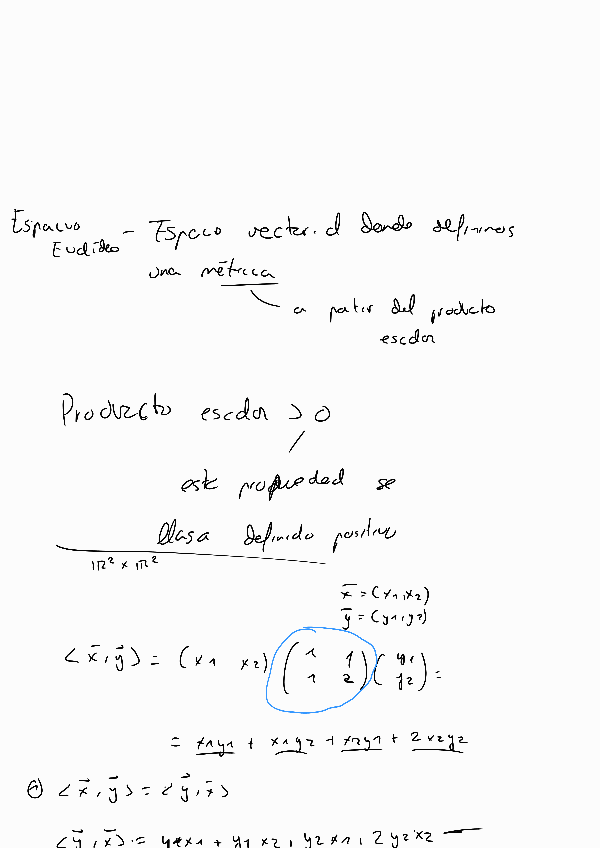 Espacio
Euclídeo - Espacio vectorial donde definimos
una métrica
a partir del producto
escalar
Producto escalar > 0
esta propiedad se
llama definido positivo
ℝ² × ℝ²
x̄ = (x1, x2)
ȳ = (y1, y2)
<x̄, ȳ> = (x1 x2) (1 1 / 1 2) (y1 / y2) =
= x1y1 + x1y2 + x2y1 + 2x2y2
<x̄, ȳ> = <ȳ, x̄>
<ȳ, x̄> = y1x1 + y1x2 + y2x1, 2y2x2